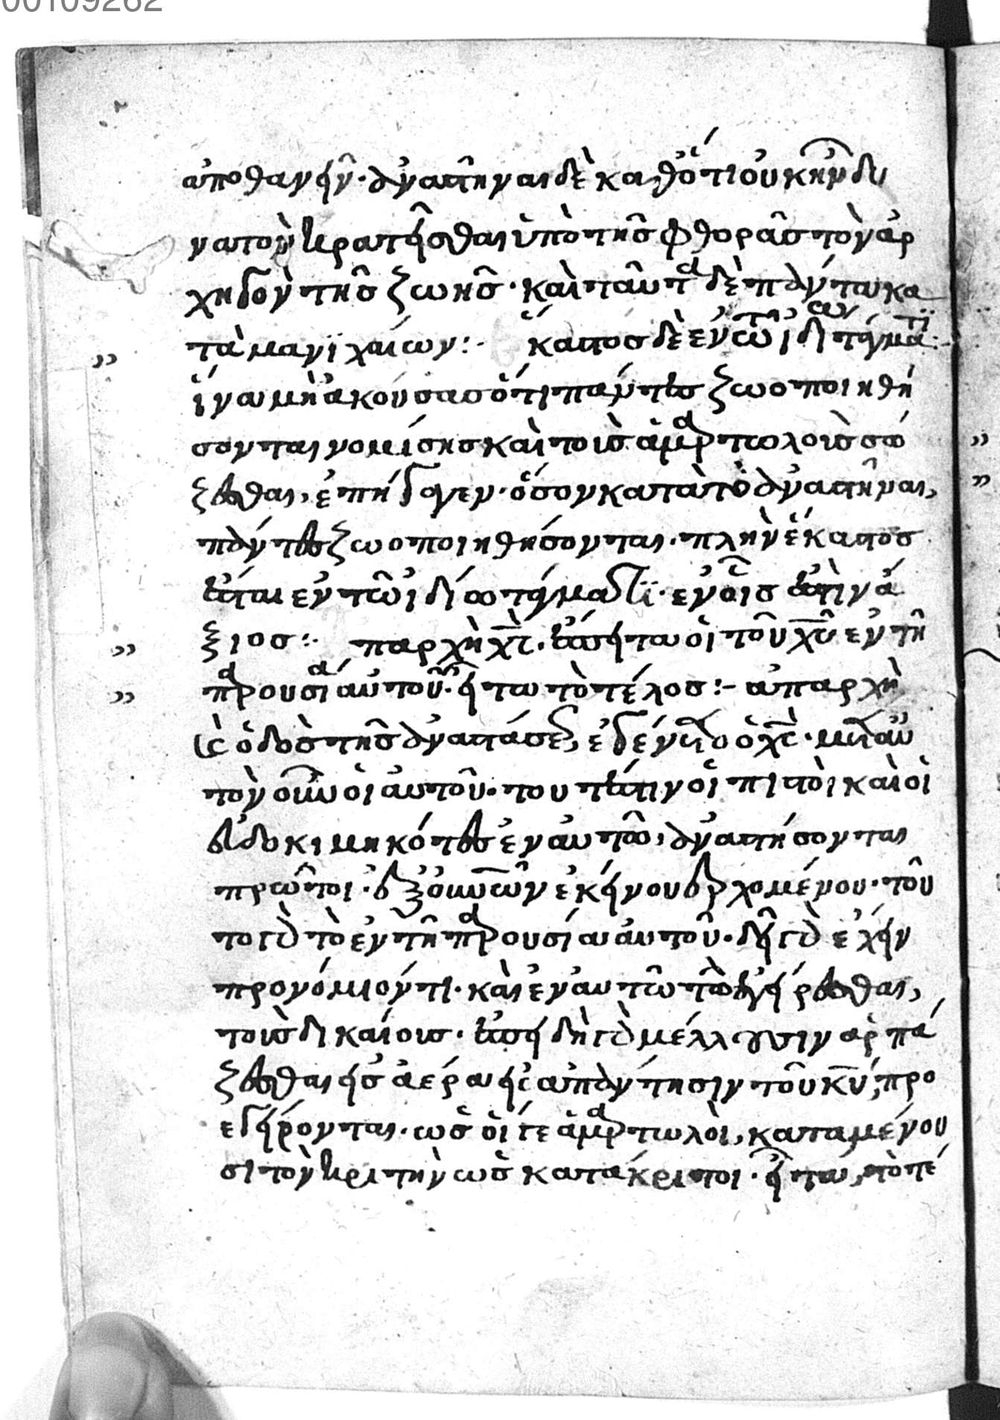 00109262
ἀποθανεῖν· ἀναστῆναι δὲ καθότι οὐκ ἦν δυ
νατὸν κρατεῖσθαι ὑπὸ τῆς φθορᾶς τὸν ἀρ
χηγὸν τῆς ζωῆς· καὶ ταῦτα δὲ πάντα κα
τὰ μανιχαίων:· ἕκαστος δὲ ἐν τῷ ἰδίω τάγματι:
ἵνα μὴ ἀκούσας ὅτι πάντες ζωοποιηθή
σονται νομίσης καὶ τοῖς ἁμαρτωλοῖς σώ
ζεσθαι, ἐπήγαγεν· ὅσον κατὰ τὸ ἀναστῆναι,
πάντες ζωοποιηθήσονται· πλὴν ἕκαστος
ἔσται ἐν τῶ ἰδίω τάγματι· ἐν οἷς ἐστὶν ἄ
ξιος:· ἀπαρχὴ χς· ἔπειτα οἱ τοῦ χυ ἐν τῆ
παρουσία αὐτοῦ· εἶτα τὸ τέλος:- ἀπαρχὴ
καὶ ὁδὸς τῆς ἀναστάσεως, ἐγένετο ὁ χς· μετ αὐ
τὸν οὖν οἱ αὐτοῦ· τουτέστιν οἱ πιστοὶ καὶ οἱ
εὐδοκιμηκότες ἐν αὐτῶ, ἀναστήσονται
πρῶτοι· ἐξ οὐνῶν ἐκείνου ἐρχομένου· τοῦ
το γὰρ τὸ ἐν τῆ παρουσία αὐτοῦ· δεῖ γὰρ ἔχειν
προνόμιόν τι· καὶ ἐν αὐτῶ τῶ ἐγείρεσθαι,
τοὺς δικαίους· ἐπειδὴ γὰρ μέλλουσιν ἁρπά
ζεσθαι εἰς ἀέρα εἰς ἀπάντησιν τοῦ κυ, προ
εγείρονται· ὡς οἵ γε ἁμαρτωλοὶ, καταμένου
σι τὸν κριτὴν ὡς κατάκριτοι· εἶτα, τὸ τέ